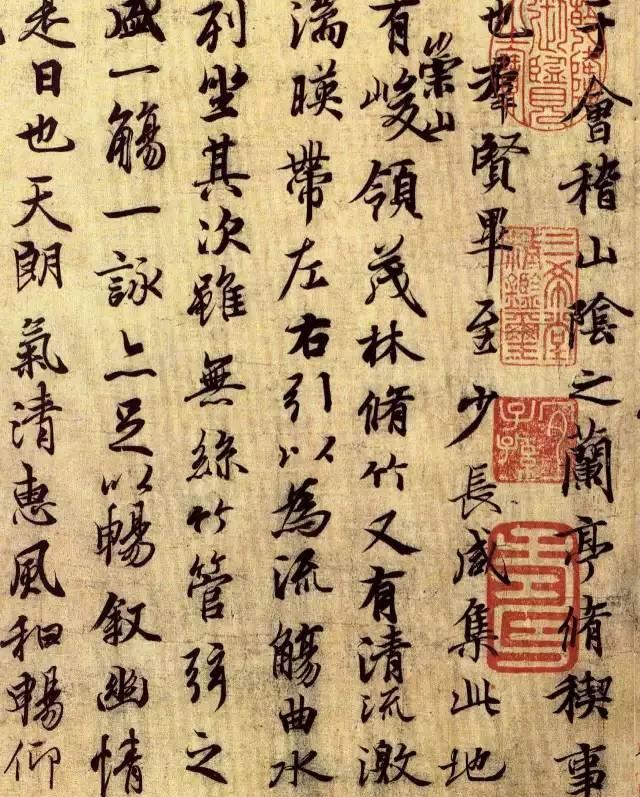 于會稽山陰之蘭亭脩稧事
也羣賢畢至少長咸集此地
有崇山峻領茂林脩竹又有清流激
湍暎帶左右引以為流觴曲水
列坐其次雖無絲竹管弦之
盛一觴一詠亦足以暢敘幽情
是日也天朗氣清惠風和暢仰
三希堂精鑑璽
宜子孫